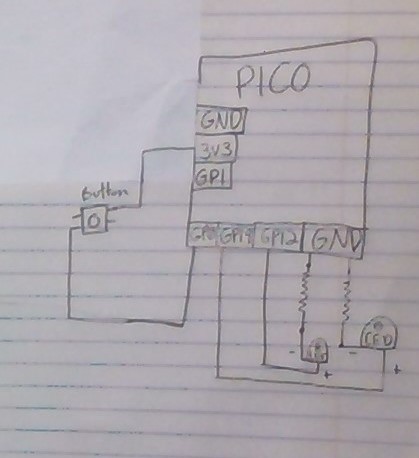 PICO
GND
3V3
GP1
Button
GP14 GP12 GND
LED
- +
- +